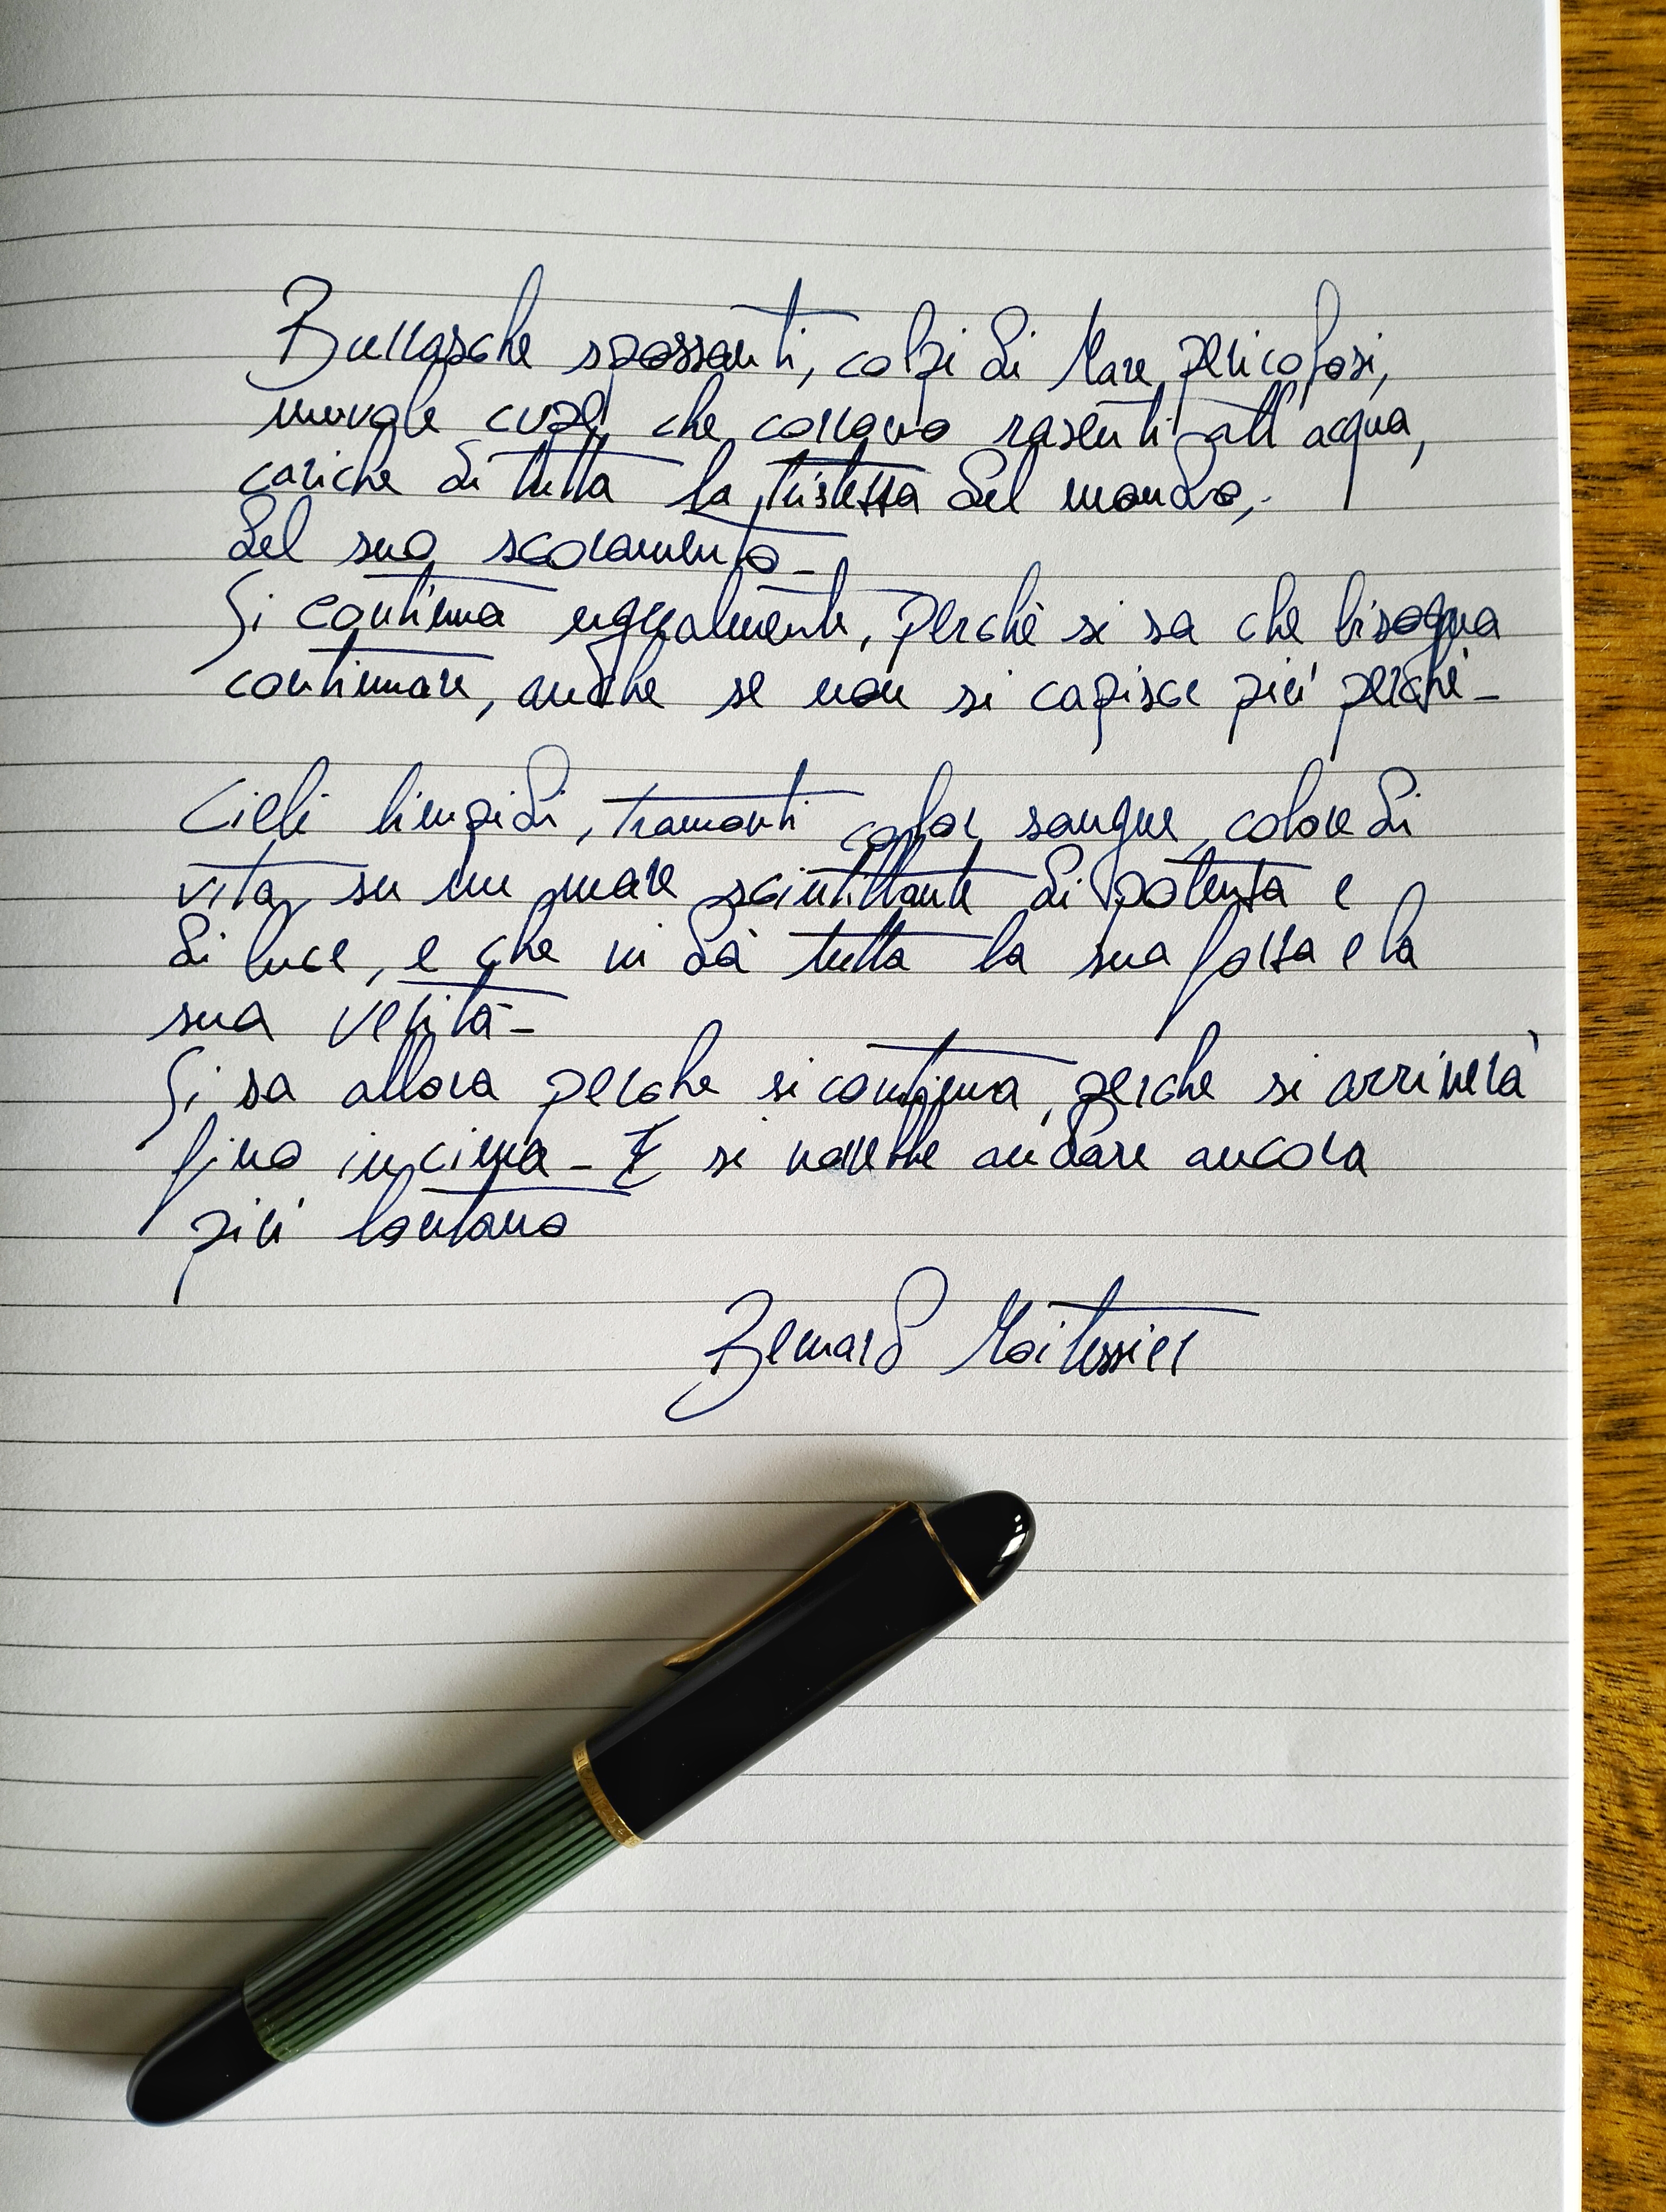 Burrasche spossanti, colpi di Mare pericolosi,
nuvole cupe, che corrono rasenti all'acqua,
cariche di tutta la tristezza del mondo,
del suo scoramento -
Si continua ugualmente, perchè si sa che bisogna
continuare, anche se non si capisce più perchè -
Cieli limpidi, tramonti color sangue, colore di
vita, su un mare scintillante di potenza e
di luce, e che vi dà tutta la sua forza e la
sua verità -
Si sa allora perche si continua, perche si arriverà
fino in cima - E si vorrebbe andare ancora
più lontano
Bernard Moitessier